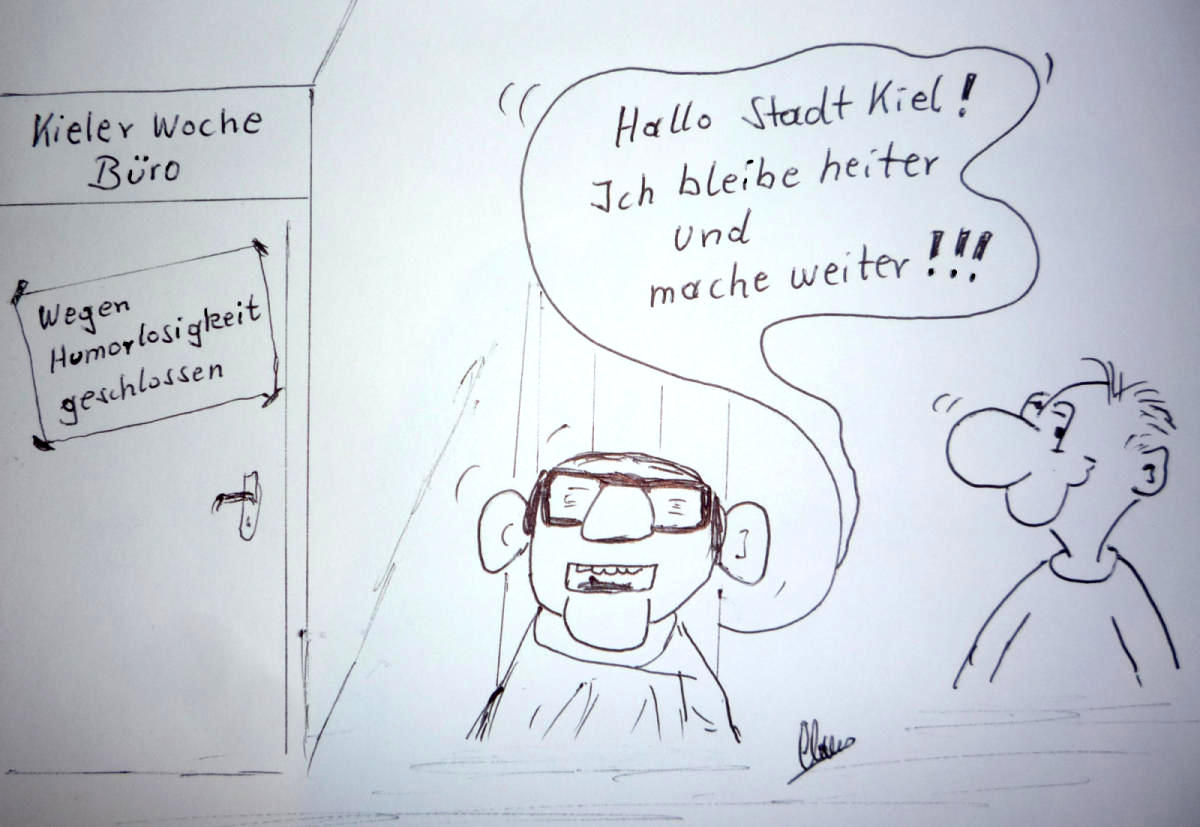 Kieler Woche
Büro
Wegen
Humorlosigkeit
geschlossen
Hallo Stadt Kiel!
Ich bleibe heiter
und
mache weiter!!!